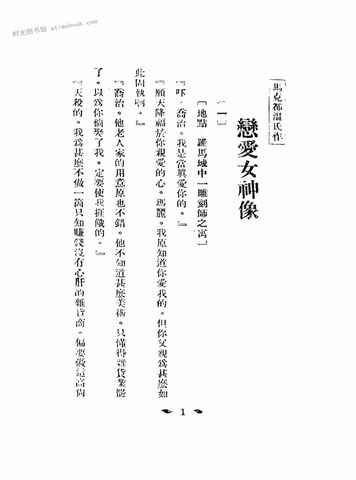 時光图书馆 atimebook.com
馬克都溫氏作
戀愛女神像
〔一〕
〔地點 羅馬城中一雕刻師之寓〕
『吓喬治。我是當眞愛你的。』
『願天降福於你親愛的心。瑪麗。我原知道你愛我的。但你父親爲甚麽如
此固執啊。』
『喬治。他老人家的用意原也不錯。他不知道甚麽美術。只懂得雜貨業罷
了。以爲你倘娶了我。定要使我捱餓的。』
『天殺的。我爲甚麽不做一箇只知賺錢沒有心肝的雜貨商。偏要做這高尙
1